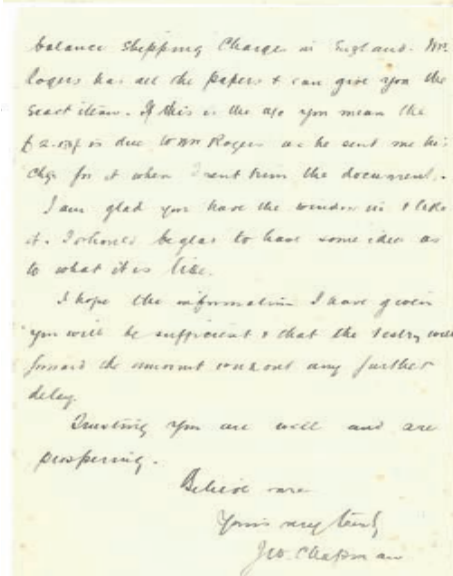 balance shipping Charges in England. Mr.
Rogers has all the papers & can give you the
exact items. If this is the a/c you mean the
is due to Mr Rogers as he sent me his
Chq for it when I sent him the document.
I am glad you have the window in & like
it. I should be glad to have some idea as
to what it is like.
I hope the information I have given
you will be sufficient & that the Vestry will
forward the amount without any further
delay.
Trusting you are well and are
prospering.
Believe me
Yours very truly
Jno. Chapman